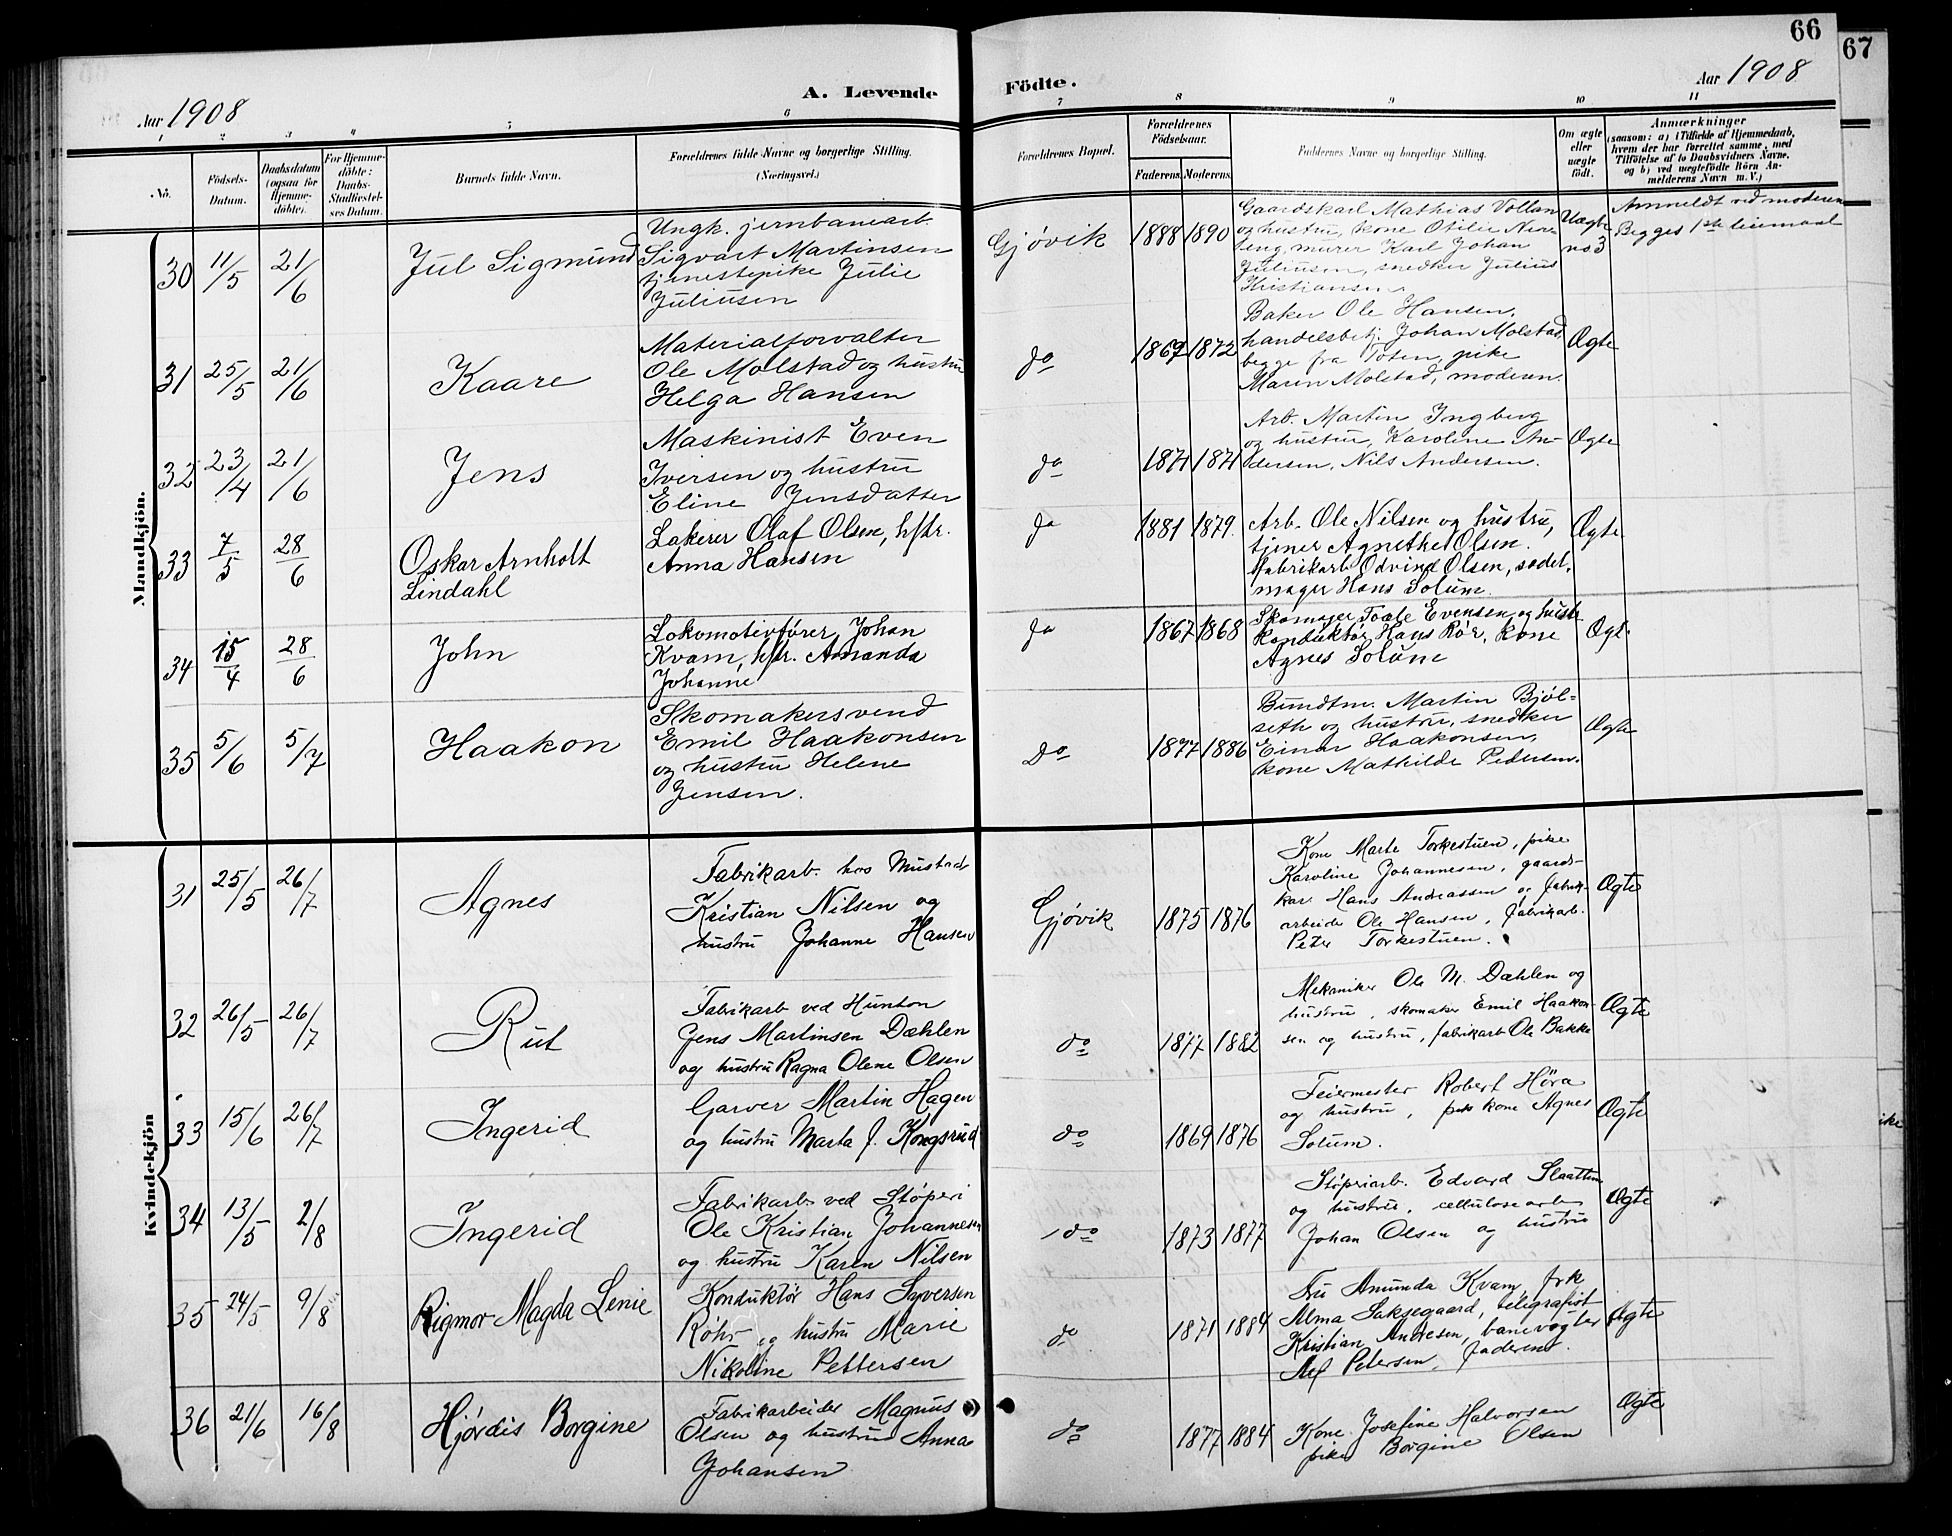 66
67
Aar 1908
A. Levende
Födte.
Aar 1908
1 2 3 4 5 6 7 8 9 10 11
No.
Födsels-
Datum.
Daabsdatum
(ogsaa for
Hjemme-
döbte).
For Hjemme-
döbte:
Daabs-
Stadfæstel-
ses Datum.
Barnets fulde Navn.
Forældrenes fulde Navne og borgerlige Stilling.
(Næringsvei.)
Forældrenes Bopæl.
Forældrenes
Födselsaar.
Faderens. Moderens.
Faddernes Navne og borgerlige Stilling.
Om ægte
eller
uægte
født.
Anmærkninger
(saasom: a) i Tilfælde af Hjemmedaab,
hvem der har forrettet samme, med
Tilföielse af to Daabsvidners Navne,
og b) ved uægtefödte Börn An-
melderens Navn m. V.)
Mandkjön.
30 11/5 21/6 Jul Sigmund
Ungk. jernbanearb.
Sigvart Martinsen
tjenestepike Julie
Juliusen
Gjøvik 1888 1890
Gaardskarl Mathias Vollan
og hustru, kone Otilie
murer Karl Johan
Juliusen, snedker Julius
Kristiansen
Uægte
no 3
Anmeldt ved moderen
Begges 1ste leiemaal
31 25/5 21/6 Kaare
Materialforvalter
Ole Molstad og hustru
Helga Hansen
do 1869 1872
Baker Ole Hansen,
handelsbetj. Johan Molstad,
begge fra Toten, pike
Maren Molstad, moderen.
Ægte
32 23/4 21/6 Jens
Maskinist Even
Iversen og hustru
Eline Jensdatter
do 1871 1871
Arb. Martin Ingberg
og hustru, Karoline An-
dersen, Nils Andersen.
Ægte
33 7/5 28/6 Oskar Arnholt
Lindahl
Lakerer Olaf Olsen, h/tr.
Anna Hansen
do 1881 1879.
Arb. Ole Nilsen og hustru,
tjener Agnethe Olsen.
fabrikarb. Odvind Olsen, sadel-
mager Hans Solum
Ægte
34 15/4 28/6 John
Lokomotivfører Johan
Kvam, h/tr. Amanda
Johanne
do 1867 1868
Skomager Toale Evensen og hustr
konduktør Hans Rør, kone
Agnes Solum
Ægt.
35 5/6 5/7 Haakon
Skomakersvend
Emil Haakonsen
og hustru Helene
Jensen.
Do 1877 1886
Bundtm. Martin Bjøl-
seth og hustru, snedker
Einar Haakonsen,
kone Mathilde Pedersen.
Ægte
Kvindekjön
31 25/5 26/7 Agnes
Fabrikarb. hos Mustad
Kristian Nilsen og
hustru Johanne Hansen
Gjøvik 1875 1876
Kone Marte Torkestuen, pike
Karoline Johannesen, gaards-
kar Hans Andreassen og fabrik-
arbeider Ole Hansen, fabrikarb.
Peter Torkestuen.
Ægte
32 26/5 26/7 Rut
Fabrikarb ved Hunton
Jens Martinsen Dæhlen
og hustru Ragna Olene Olsen
do 1877 1882
Mekaniker Ole M. Dæhlen og
hustru, skomaker Emil Haakon-
sen og hustru, fabrikarb Ole Bakke
Ægte
33 15/6 26/7 Ingerid
Garver Martin Hagen
og hustru Marta J. Kongsrud
do 1869 1876
Feiermester Robert Høra
og hustru, kone Agnes
Solum.
Ægte
34 13/5 2/8 Ingerid
Fabrikarb ved Støperi
Ole Kristian Johannesen
og hustru Karen Nilsen
do 1873 1877
Støperiarb. Edvard Slaatten
og hustru, cellulosearb
Johan Olsen og hustru
Ægte
35 24/5 9/8 Rigmor Magda Lenie
Konduktør Hans Syversen
Røhr og hustru Marie
Nikoline Pettersen
do 1871 1884
Fru Amunda Kvam, frk
Alma Saksegaard, telegrafist
Kristian Andresen, banevogter
Alf Petersen, faderen.
Ægte
36 21/6 16/8 Hjørdis Borgine
Fabrikarbeider Magnus
Olsen og hustru Anna
Johansen
do 1877 1884
Kone Josefine Halvorsen
pike Borgine Olsen
Ægte